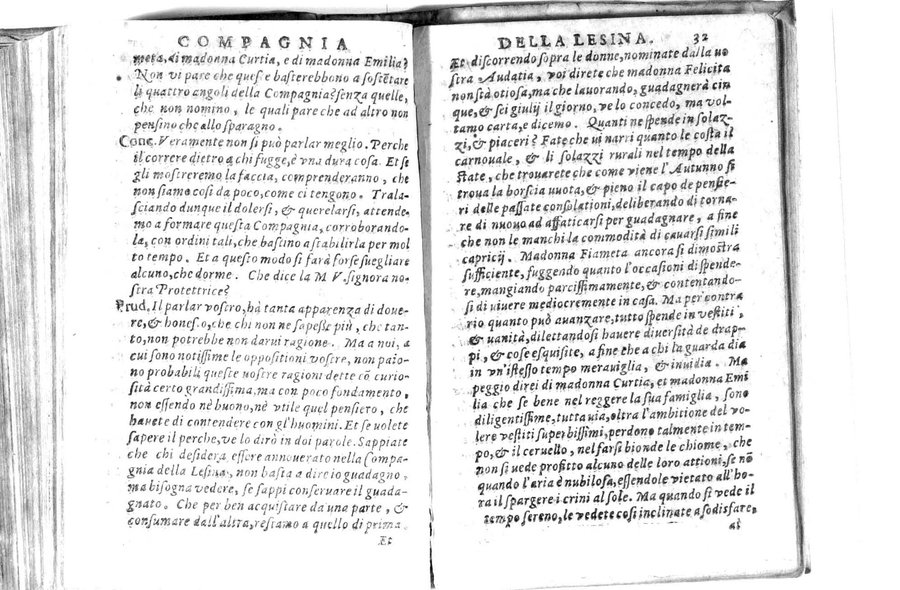 COMPAGNIA
meta, di madonna Curtia, e di madonna Emilia?
Non vi pare che queste basterebbono a sostẽtare
li quattro angoli della Compagnia? senza quelle,
che non nomino, le quali pare che ad altro non
pensino che allo sparagno.
Conc. Veramente non si può parlar meglio. Perche
il correre dietro a chi fugge, è vna dura cosa. Et se
gli mostreremo la faccia, comprenderanno, che
non siamo cosi da poco, come ci tengono. Trala-
sciando dunque il dolersi, & querelarsi, attende.
mo a formare questa Compagnia, corroborando-
la, con ordini tali, che bastino a stabilirla per mol
to tempo. Et a questo modo si farà forse suegliare
alcuno, che dorme. Che dice la M V. signora no-
stra Protettrice?
Prud. Il parlar vostro, hà tanta apparenza di doue-
re, & honesto, che chi non ne sapesse più, che tan-
to, non potrebbe non darui ragione. Ma a nui, a
cui sono notissime le oppositioni vostre, non paio-
no probabili queste vostre ragioni dette cõ curio-
sità certo grandissima, ma con poco fondamento,
non essendo nè buono, nè vtile quel pensiero, che
hauete di contendere con gl'huomini. Et se uolete
sapere il perche, ve lo dirò in doi parole. Sappiate
che chi desidera essere annouerato nella Compa-
gnia della Lesina, non basta a dire io guadagno,
ma bisogna vedere, se sappi conseruare il guada-
gnato. Che per ben acquistare da una parte, &
consumare dall'altra, restiamo a quello di prima.
Et
DELLA LESINA. 32
Et discorrendo sopra le donne, nominate dalla uo
stra Audatia, voi direte che madonna Felicita
non stà otiosa, ma che lauorando, guadagnerà cin
que, & sei giulij il giorno, ve lo concedo, ma vol-
tamo carta, e dicemo. Quanti ne spende in solaz-
zi, & piaceri? Fate che ui narri quanto le costa il
carnouale, & li solazzi rurali nel tempo della
state, che trouarete che come viene l'Autunno si
troua la borscia uuota, & pieno il capo de pensie-
ri delle passate consolationi, deliberando di torna-
re di nuouo ad affaticarsi per guadagnare, a fine
che non le manchi la commodità di cauarsi simili
capricij. Madonna Fiameta ancora si dimostra
sufficiente, fuggendo quanto l'occasioni di spende-
re, mangiando parcissimamente, & contentando-
si di viuere mediocremente in casa. Ma per contra
rio quanto può auanzare, tutto spende in vestiti,
& uanità, dilettandosi hauere diuersità de drap-
pi, & cose esquisite, a fine che a chi la guarda dia
in vn'istesso tempo merauiglia, & inuidia. Ma
peggio direi di madonna Curtia, et madonna Emi
lia che se bene nel reggere la sua famiglia, sono
diligentissime, tuttauia, oltra l'ambitione del vo-
lere vestiti superbissimi, perdono talmente in tem-
po, & il ceruello, nel farsi bionde le chiome, che
non si uede profitto alcuno delle loro attioni, se nõ
quando l'aria è nubilosa, essendole vietato all'ho-
ra il spargere i crini al sole. Ma quando si vede il
tempo sereno, le vedete cosi inclinate a sodisfare,
al